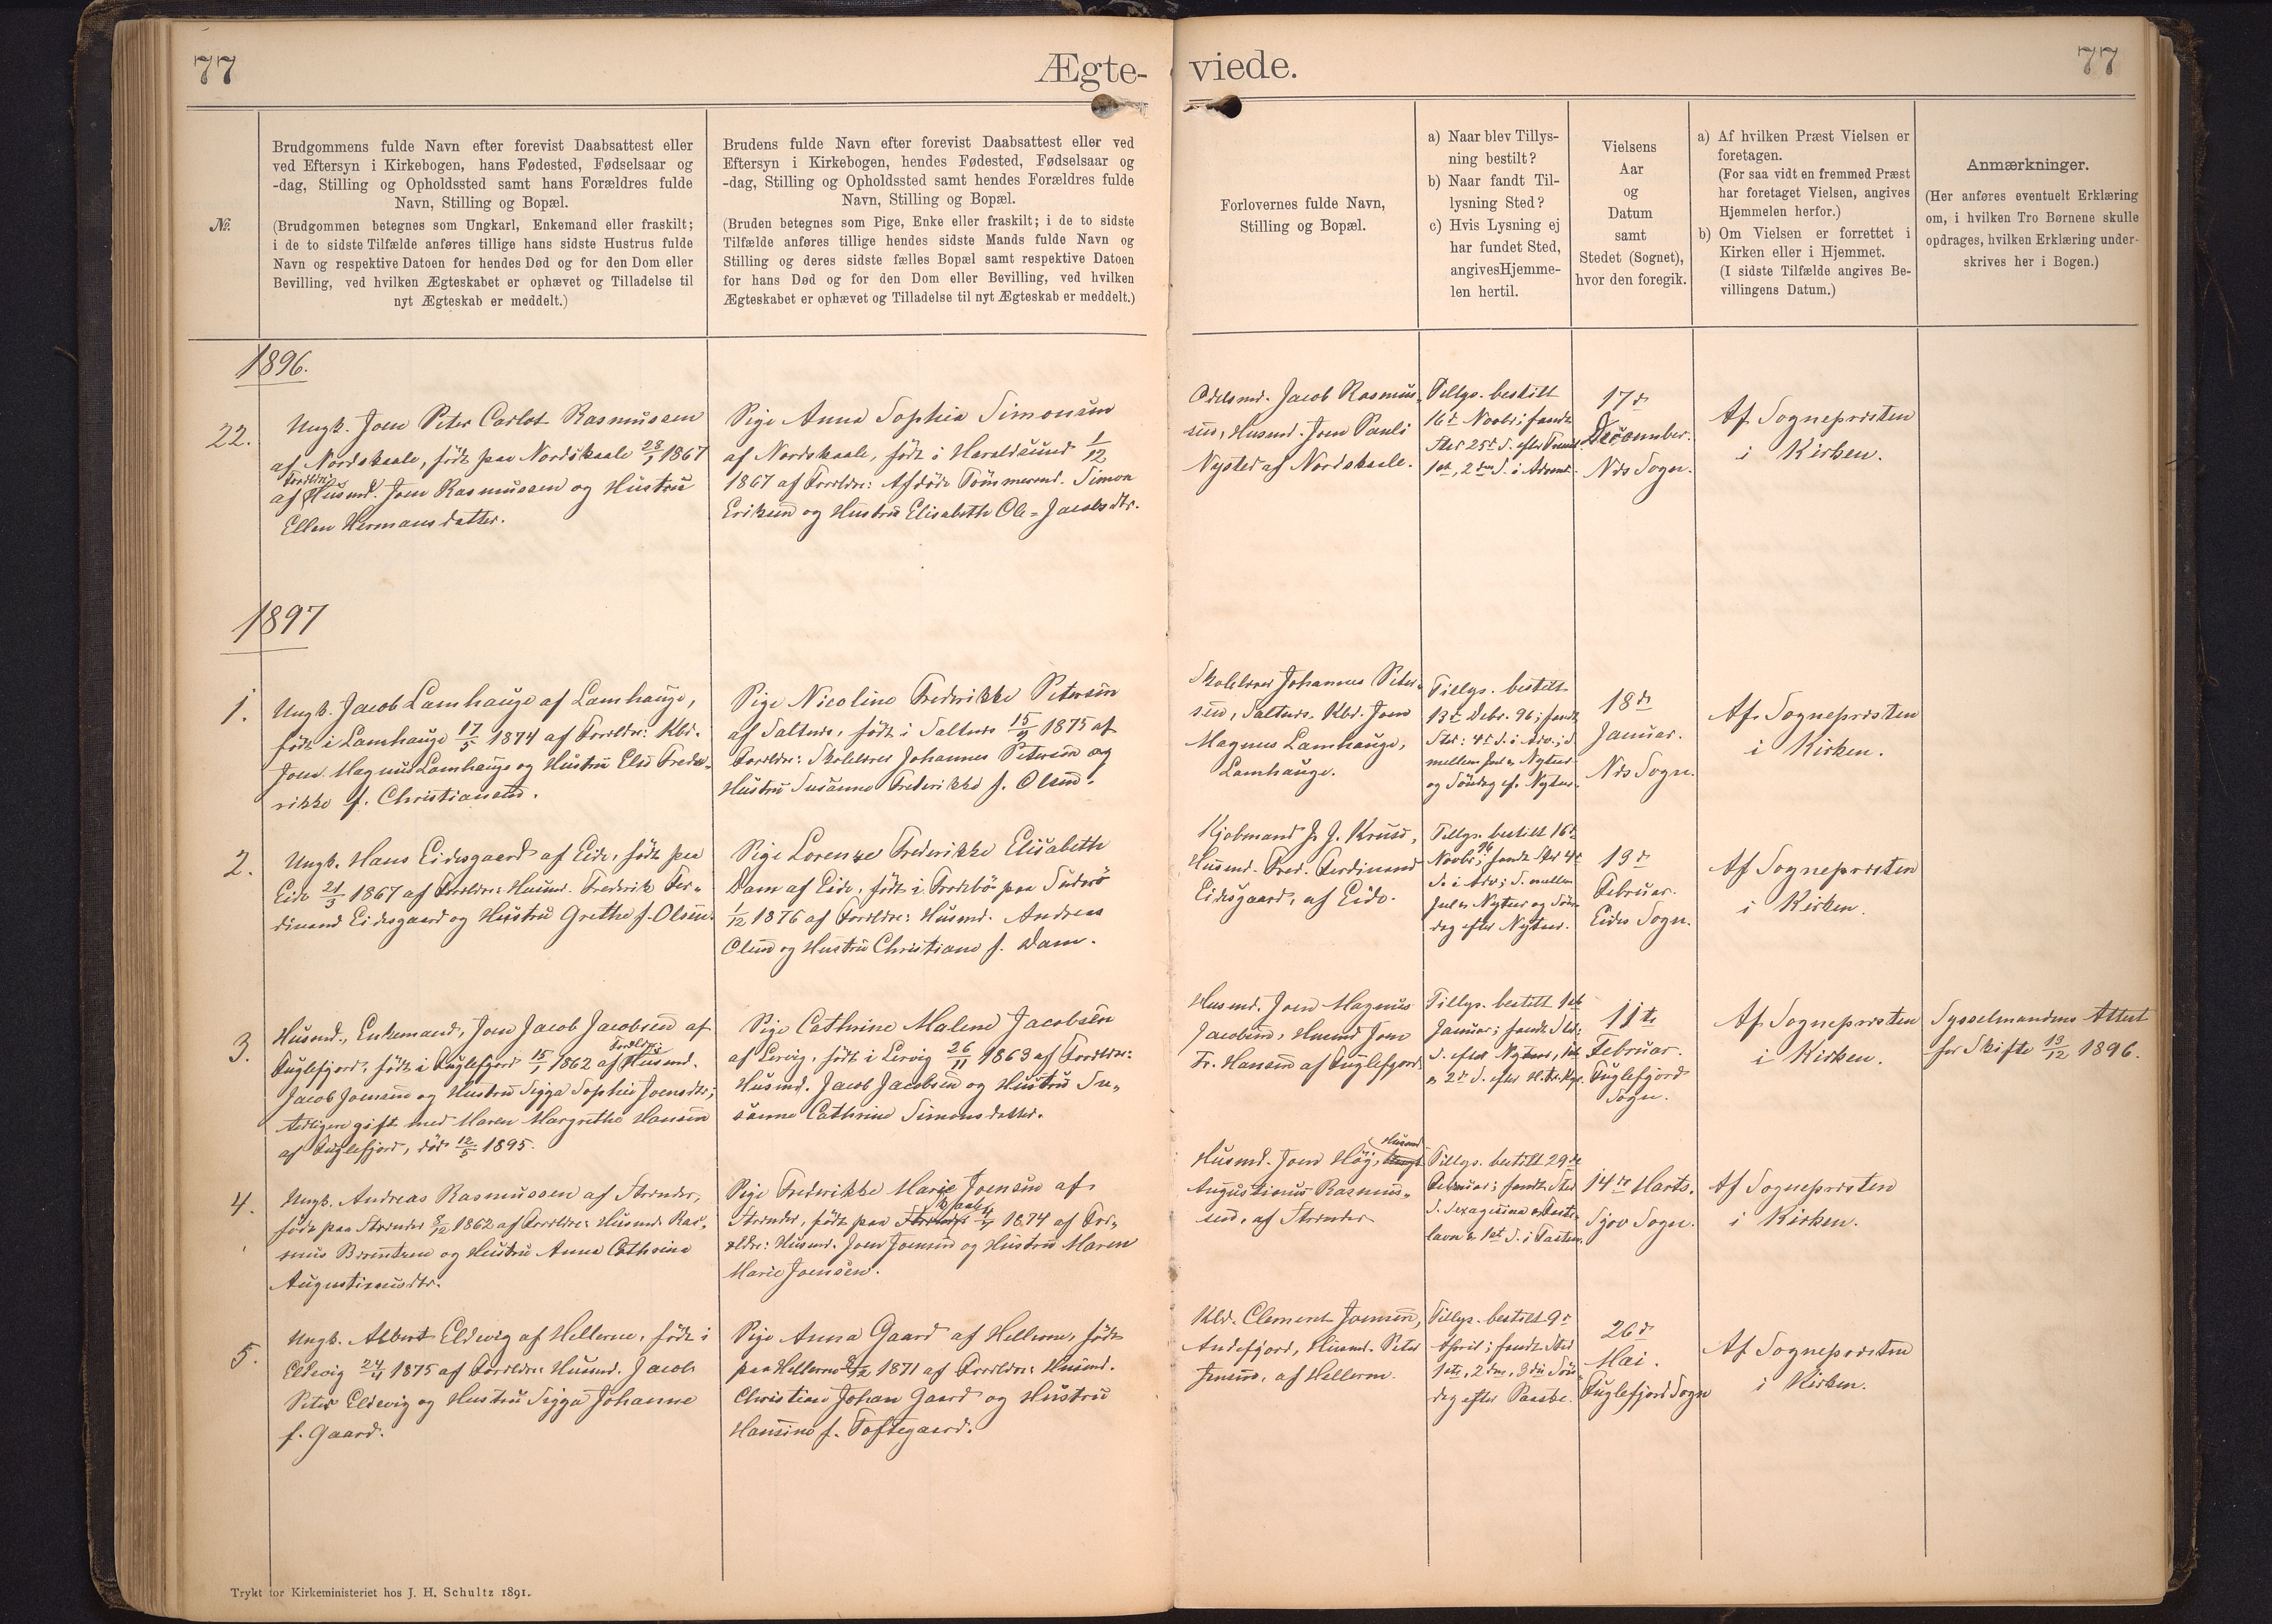 77
Ægte-
viede.
77
№.
Brudgommens fulde Navn efter forevist Daabsattest eller
ved Eftersyn i Kirkebogen, hans Fødested, Fødselsaar og
-dag, Stilling og Opholdssted samt hans Forældres fulde
Navn, Stilling og Bopæl.
(Brudgommen betegnes som Ungkarl, Enkemand eller fraskilt;
i de to sidste Tilfælde anføres tillige hans sidste Hustrus fulde
Navn og respektive Datoen for hendes Død og for den Dom eller
Bevilling, ved hvilken Ægteskabet er ophævet og Tilladelse til
nyt Ægteskab er meddelt.)
Brudens fulde Navn efter forevist Daabsattest eller ved
Eftersyn i Kirkebogen, hendes Fødested, Fødselsaar og
-dag, Stilling og Opholdssted samt hendes Forældres fulde
Navn, Stilling og Bopæl.
(Bruden betegnes som Pige, Enke eller fraskilt; i de to sidste
Tilfælde anføres tillige hendes sidste Mands fulde Navn og
Stilling og deres sidste fælles Bopæl samt respektive Datoen
for hans Død og for den Dom eller Bevilling, ved hvilken
Ægteskabet er ophævet og Tilladelse til nyt Ægteskab er meddelt.)
Forlovernes fulde Navn,
Stilling og Bopæl.
a) Naar blev Tillys-
ning bestilt?
b) Naar fandt Til-
lysning Sted?
c) Hvis Lysning ej
har fundet Sted,
angivesHjemme-
len hertil.
Vielsens
Aar
og
Datum
samt
Stedet (Sognet),
hvor den foregik.
a) Af hvilken Præst Vielsen er
foretagen.
(For saa vidt en fremmed Præst
har foretaget Vielsen, angives
Hjemmelen herfor.)
b) Om Vielsen er forrettet i
Kirken eller i Hjemmet.
(I sidste Tilfælde angives Be-
villingens Datum.)
Anmærkninger.
(Her anføres eventuelt Erklæring
om, i hvilken Tro Børnene skulle
opdrages, hvilken Erklæring under-
skrives her i Bogen.)
1896.
22.
Ungk. Joen Peter Carlot Rasmussen
af Nordskaale, født paa Nordskaale 28/1 1867
af Forældre: Husmd. Joen Rasmussen og Hustru
Ellen Hermansdatter.
Pige Anna Sophia Simonsen
af Nordskaale, født i Haraldssund 1/12
1867 af Forældre: Afdøde Tömmermd. Simon
Eriksen og Hustru Elisabeth Ole-Jacobsdtr.
Odelsmd. Jacob Rasmus-
sen, Husmd. Joen Pauli
Nysted af Nordskaale.
Tillys. bestilt
16d Novbr; fandt
Sted 25d S. efter
1st, 2den S. i Advent.
17de
December.
Nds Sogn.
Af Sognepræsten
i Kirken.
1897
1.
Ungk. Jacob Lamhauge af Lamhauge,
født i Lamhauge 17/5 1874 af Forældre: Kbd.
Joen Magnus Lamhauge og Hustru Else Frede-
rikke f. Christiansen.
Pige Nicoline Frederikke Petersen
af Saltnæs, født i Saltnæs 15/9 1875 af
Forældre: Skolelærer Johannes Petersen og
Hustru Susanne Frederikke f. Olsen.
Skolelærer Johannes Peter-
sen, Saltnæs. Kbd. Joen
Magnus Lamhauge,
Lamhauge.
Tillys. bestilt
13d Debr. 96; fandt
Sted: 4d S. i Adv.; S.
mellem Jul & Nytaar
og Söndag ef. Nytaar.
18de
Januar.
Nds Sogn.
Af Sognepræsten
i Kirken.
2.
Ungk. Hans Eidesgaard af Eide, født paa
Eide 21/3 1867 af Forældre: Husmd. Frederik Fer-
dinand Eidesgaard og Hustru Grethe f. Olsen.
Pige Lorenze Frederikke Elisabeth
Dam af Eide, født i Frodebö paa Suderö
1/12 1876 af Forældre: Husmd. Andreas
Olsen og Hustru Christiane f. Dam.
Kjøbmand J. Kruse,
Husmd. Fred. Ferdinand
Eidesgaard, af Eide.
Tillys. bestilt 16de
Novbr 96; fandt Sted 4d
S. i Adv; S. mellem
Jul & Nytaar og Sön-
dag efter Nytaar.
13de
Februar.
Eides Sogn.
Af Sognepræsten
i Kirken.
3.
Husmd., Enkemand, Joen Jacob Jacobsen af
Fuglefjord, født i Fuglefjord 15/1 1862 af Forældre: Husmd.
Jacob Joensen og Hustru Sigga Sophie Joensdtr;
tidligere gift med Maren Margrethe Hansen
af Fuglefjord, død 12/5 1895.
Pige Cathrine Malene Jacobsen
af Lervig, født i Lervig 26/11 1863 af Forældre:
Husmd. Jacob Jacobsen og Hustru Su-
sanne Cathrine Simonsdatter.
Husmd. Joen Magnus
Jacobsen, Husmd Joen
Fr. Hansen af Fuglefjord
Tillys. bestilt 1ste
Januar; fandt Sted:
S. efter Nytaar, 1st
& 2d S. efter H. tr. Kgr.
11te
Februar.
Fuglefjord
Sogn.
Af Sognepræsten
i Kirken.
Sysselmandens Attest
for Skifte 13/12 1896.
4.
Ungk. Andreas Rasmussen af Strender,
født paa Strender 8/12 1862 af Forældre: Husmd. Ras-
mus Berentsen og Hustru Anna Cathrine
Augustinusdtr.
Pige Frederikke Marie Joensen af
Strender, født paa 4/7 1874 af For-
ældre: Husmd. Joen Joensen og Hustru Maren
Marie Joensen.
Husmd. Joen Höj, Husmd
Augustinus Rasmus-
sen, af Strender
Tillys. bestilt 29de
Januar; fandt Sted
S. Sexagesima & Faste-
lavn & 1st S. i Fasten.
14de Marts.
Sjov Sogn.
Af Sognepræsten
i Kirken.
5.
Ungk. Albert Eldevig af Hellerne, født i
Eldevig 24/4 1875 af Forældre: Husmd. Jacob
Peter Eldevig og Hustru Sigga Johanne
f. Gaard.
Pige Anna Gaard af Hellerne, født
paa Hellerne 8/12 1871 af Forældre: Husmd.
Christian Johan Gaard og Hustru
Hansine f. Toftegaard.
Kbd. Clement Joensen,
Andefjord, Husmd. Peter
Jensen, af Hellerne.
Tillys. bestilt 9d
April; fandt Sted
1ste, 2den, 3die Sön-
dag efter Paaske.
26de
Mai.
Fuglefjord Sogn
Af Sognepræsten
i Kirken.
Trykt for Kirkeministeriet hos J. H. Schultz 1891.